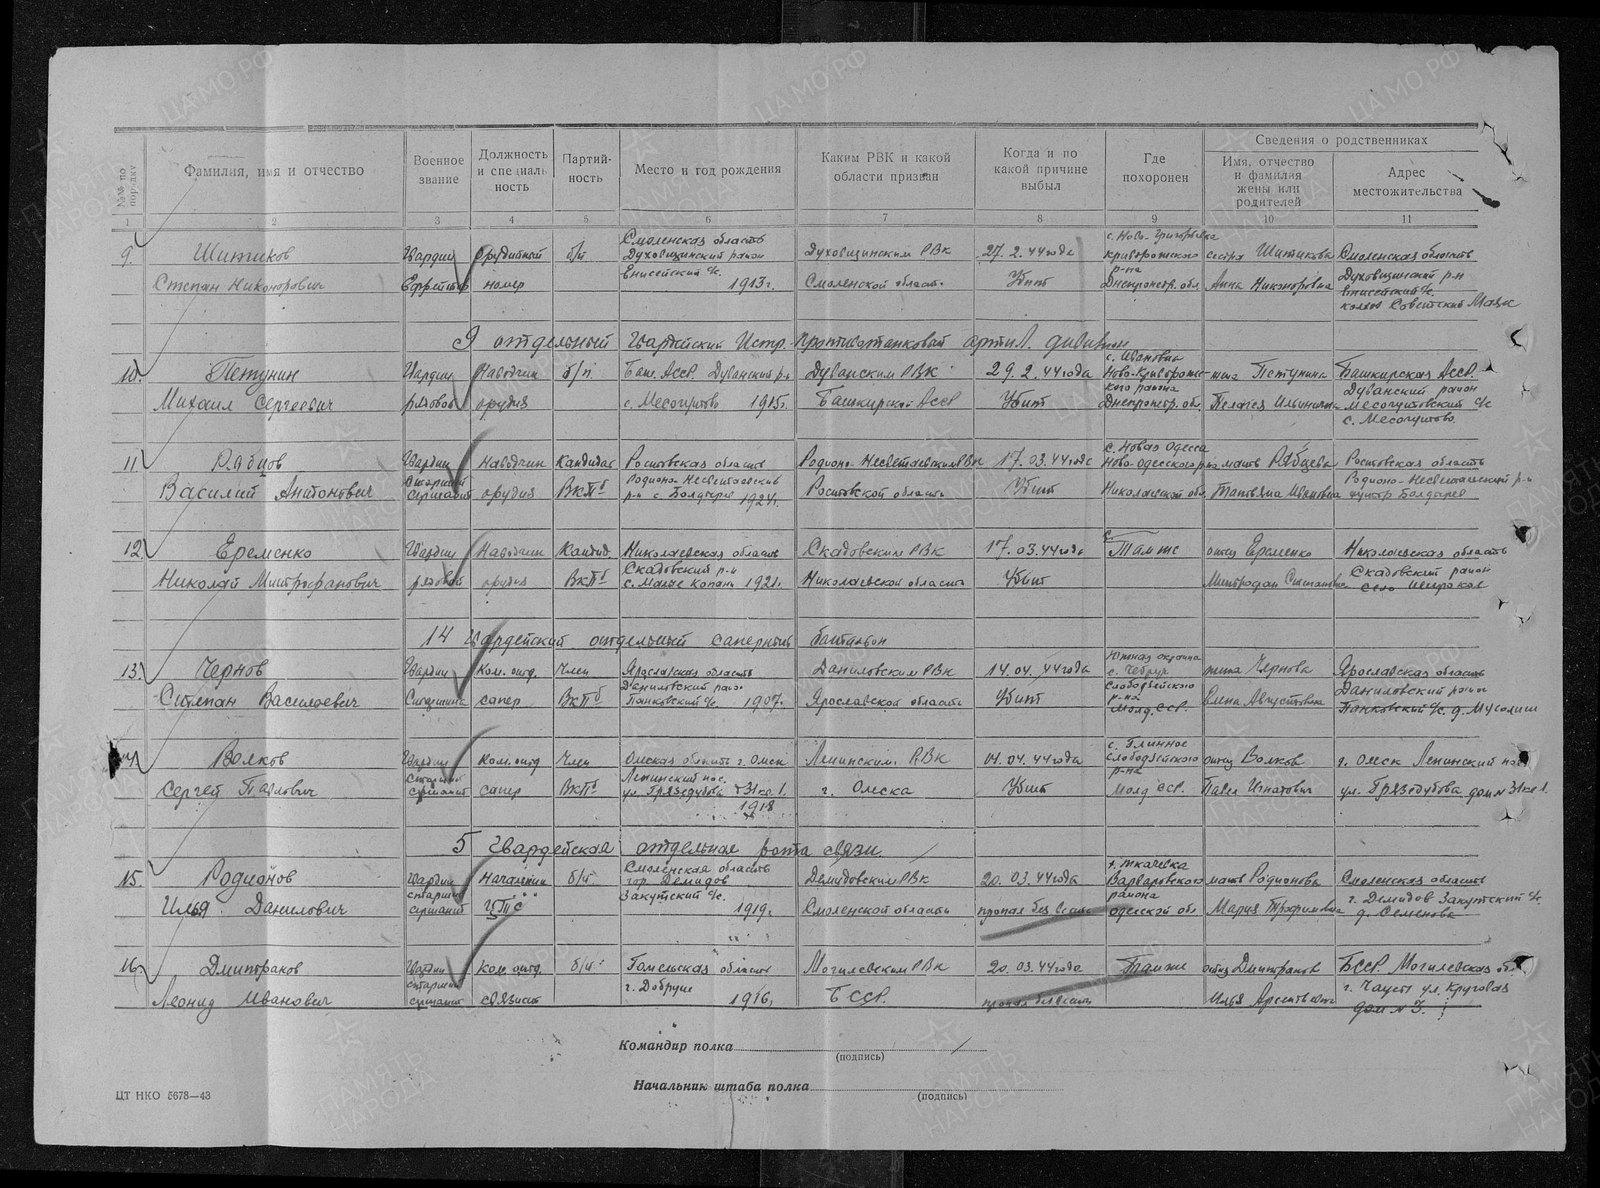 №№ по порядку
Фамилия, имя и отчество
Военное звание
Должность и специальность
Партийность
Место и год рождения
Каким РВК и какой области призван
Когда и по какой причине выбыл
Где похоронен
Сведения о родственниках
Имя, отчество и фамилия жены или родителей
Адрес местожительства
1 2 3 4 5 6 7 8 9 10 11
9. Шитиков Гвардии Орудийный б/п Смоленская область Духовщинский район Духовщинским РВК 27.2.44года с. Ново-Григорьевка Криворожского сестра Шитикова Смоленская область
Степан Никонорович Ефрейтор номер 1913г. Смоленской област. Убит р-на Днепропетр. обл. Анна Никоноровна Духовщинский р-н колхоз Советский Маяк
9 отдельный Гвардейский Истр. противотанковый артил. дивизион
10. Петунин Гвардии Наводчик б/п Баш. АССР. Дуванский р-н Дуванским РВК 29.2.44года с. Ивановка Ново-Криворож- жена Петунина Башкирская АССР.
Михаил Сергеевич рядовой орудия с. Месогутово 1915г. Башкирской АССР Убит кого района Днепропетр. обл. Пелагея Ильинична Дуванский район Месогутовский с/с с. Месогутово.
11. Рябцов Гвардии Наводчик Кандидат Ростовская область Родионо-Несветаевским РВК 17.03.44года с. Новая Одесса Ново-Одесского р-на мать Рябцева Ростовская область
Василий Антонович старший сержант орудия ВКПб Родионо-Несветаевский р-н с. Болдырев 1924г. Ростовской области Убит Николаевской обл. Татьяна Ивановна Родионо-Несветаевский р-н хутор Болдырев
12. Еременко Гвардии Наводчик Кандид. Николаевская область Скадовским РВК 17.03.44года Там же отец Еременко Николаевская область
Николай Митрофанович рядовой орудия ВКПб Скадовский р-н с. Малые Копани 1921г. Николаевской области Убит Митрофан Скадовский район село
14 Гвардейский отдельный саперный батальон
13. Чернов Гвардии Ком. отд. Член Ярославская область Даниловским РВК 14.04.44года Южная окраина с. Чебруч жена Чернова Ярославская область
Степан Васильевич Старшина сапер ВКПб Даниловский район Панковский с/с. 1907г. Ярославской области Убит Слободзейского р-на Молд. ССР. Елена Августовна Даниловский район Панковский с/с. д.
14. Волков Гвардии Ком. отд. Член Омская область г. Омск Ленинским РВК 04.04.44года с. Глинное Слободзейского отец Волков г. Омск Ленинский пос.
Сергей Павлович старший сержант сапер ВКПб Ленинский пос. ул. Грязедубова 1918 г. Омска Убит р-на Молд ССР. Павел Игнатович ул. Грязедубова дом №
5 Гвардейская отдельная рота связи.
15. Родионов Гвардии Начальник б/п Смоленская область гор. Демидов Демидовским РВК 20.03.44года х. Ткачевка Варваровского мать Родионова Смоленская область
Илья Данилович старший сержант ЦТС Закутский с/с. 1919г. Смоленской области пропал без вести района Одесской обл Мария Трофимовна г. Демидов Закутский с/с. д. Семенова
16. Дмитраков Гвардии Ком. отд. б/п Гомельская область Могилевским РВК 20.03.44года Там же отец Дмитраков БССР. Могилевская обл.
Леонид Иванович старший сержант связист г. Добруш 1916г. БССР. пропал без вести Илья г. Чаусы ул. Круговая дом № 3.
Командир полка
(подпись)
Начальник штаба полка
(подпись)
ЦТ НКО 5678—43
ПАМЯТЬ НАРОДА
ЦАМО.РФ